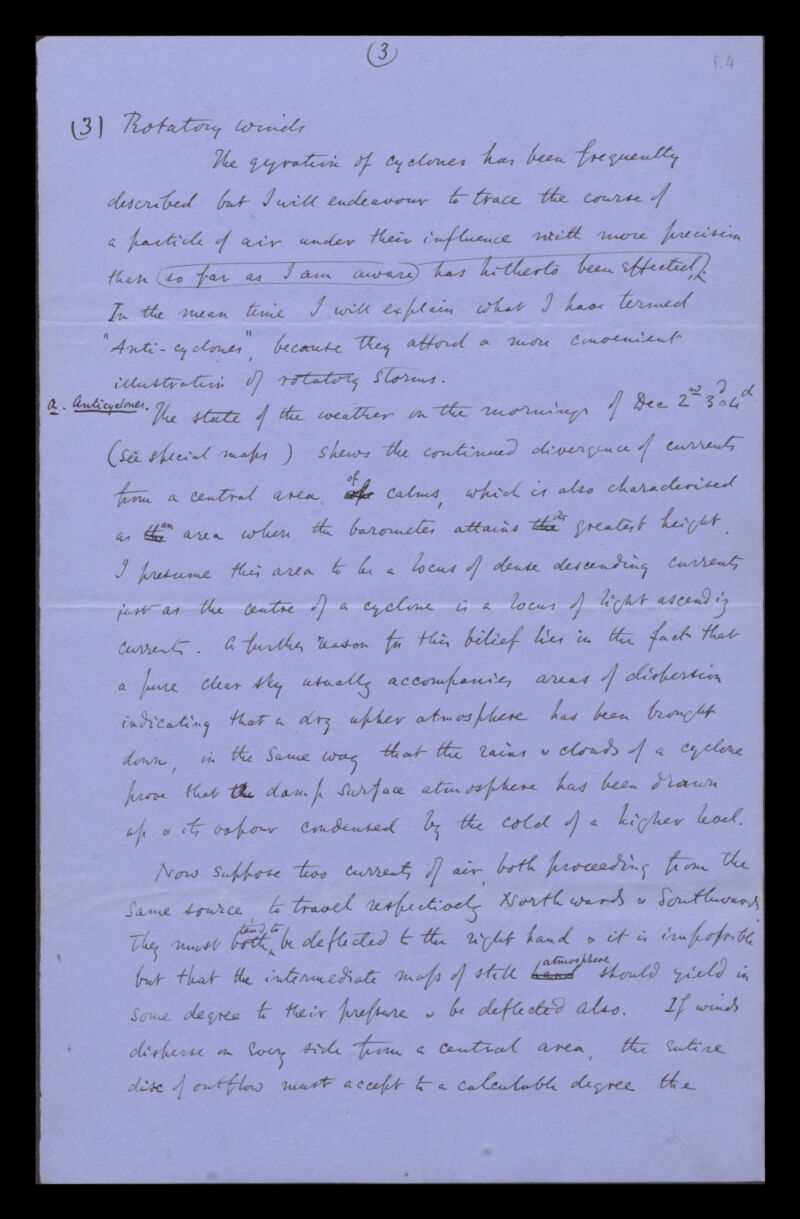 (3)
f.4
(3) Rotatory winds
The gyration of cyclones has been frequently
described but I will endeavour to trace the course of
a particle of air under their influence with more precision
than (so far as I am aware) has hitherto been effected.
In the mean time I will explain what I have termed
"Anti-cyclones", because they afford a more convenient
illustration of rotatory storms.
a. Anticyclones. The state of the weather on the mornings of Dec 2nd 3d & 4th
(see special maps) shews the continued divergence of currents
from a central area of calms, which is also characterised
as the an area where the barometer attains the its greatest height.
I presume this area to be a locus of dense descending currents
just as the centre of a cyclone is a locus of light ascending
currents. A further reason for this belief lies in the fact that
a pure clear sky usually accompanies areas of dispersion
indicating that a dry upper atmosphere has been brought
down, in the same way that the rains & clouds of a cyclone
prove that the damp surface atmosphere has been drawn
up & its vapour condensed by the cold of a higher level.
Now suppose two currents of air, both proceeding from the
same source, to travel respectively Northwards & Southwards
They must both tend to be deflected to the right hand & it is impossible
but that the intermediate mass of still atmosphere should yield in
some degree to their pressure & be deflected also. If winds
disperse on every side from a central area, the entire
disc of outflow must accept to a calculable degree the